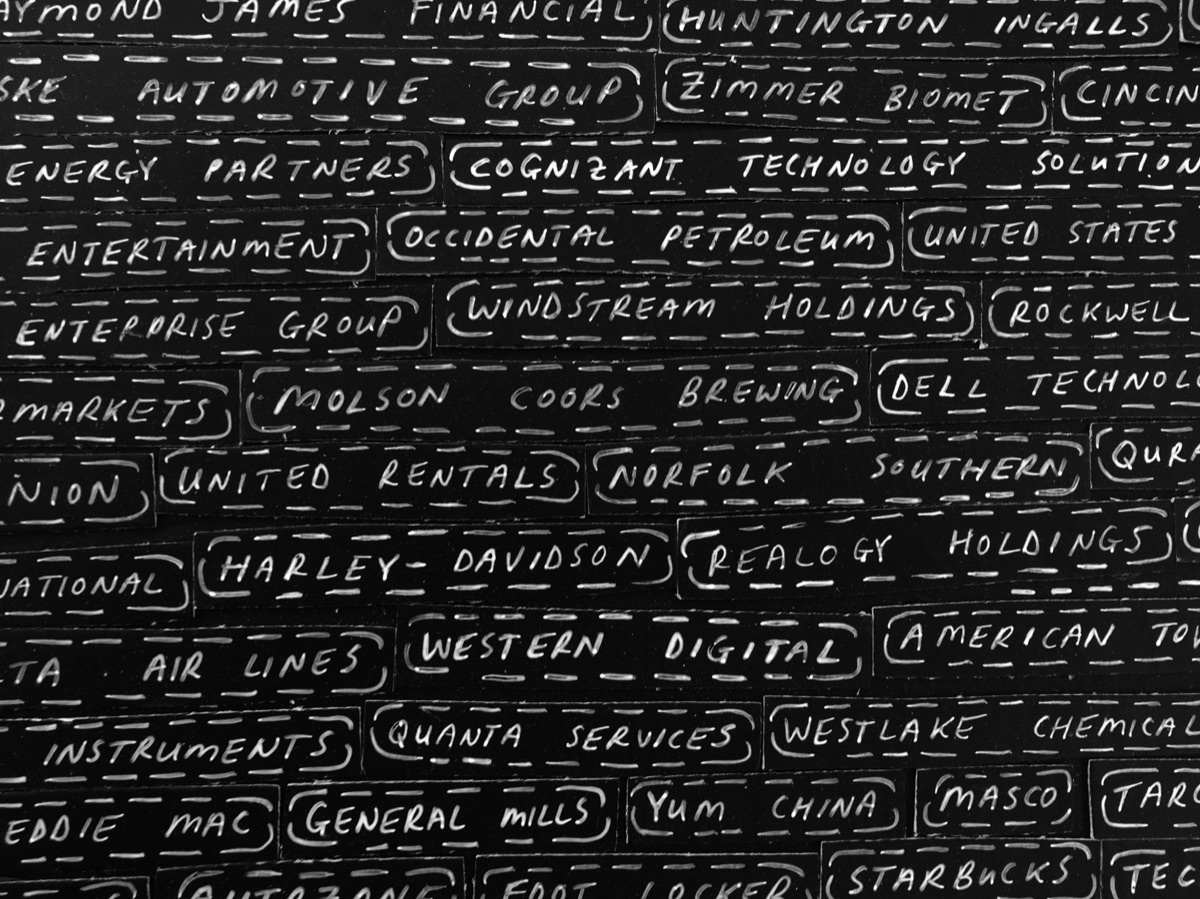 AYMOND JAMES FINANCIAL HUNTINGTON INGALLS
SKE AUTOMOTIVE GROUP ZIMMER BIOMET CINCIN
ENERGY PARTNERS COGNIZANT TECHNOLOGY SOLUTION
ENTERTAINMENT OCCIDENTAL PETROLEUM UNITED STATES
ENTERPRISE GROUP WINDSTREAM HOLDINGS ROCKWELL
RMARKETS MOLSON COORS BREWING DELL TECHNOLO
NION UNITED RENTALS NORFOLK SOUTHERN QURA
NATIONAL HARLEY-DAVIDSON REALOGY HOLDINGS
TA AIR LINES WESTERN DIGITAL AMERICAN TO
INSTRUMENTS QUANTA SERVICES WESTLAKE CHEMICAL
EDDIE MAC GENERAL MILLS YUM CHINA MASCO TARG
AUTOZONE FOOT LOCKER STARBUCKS TEC